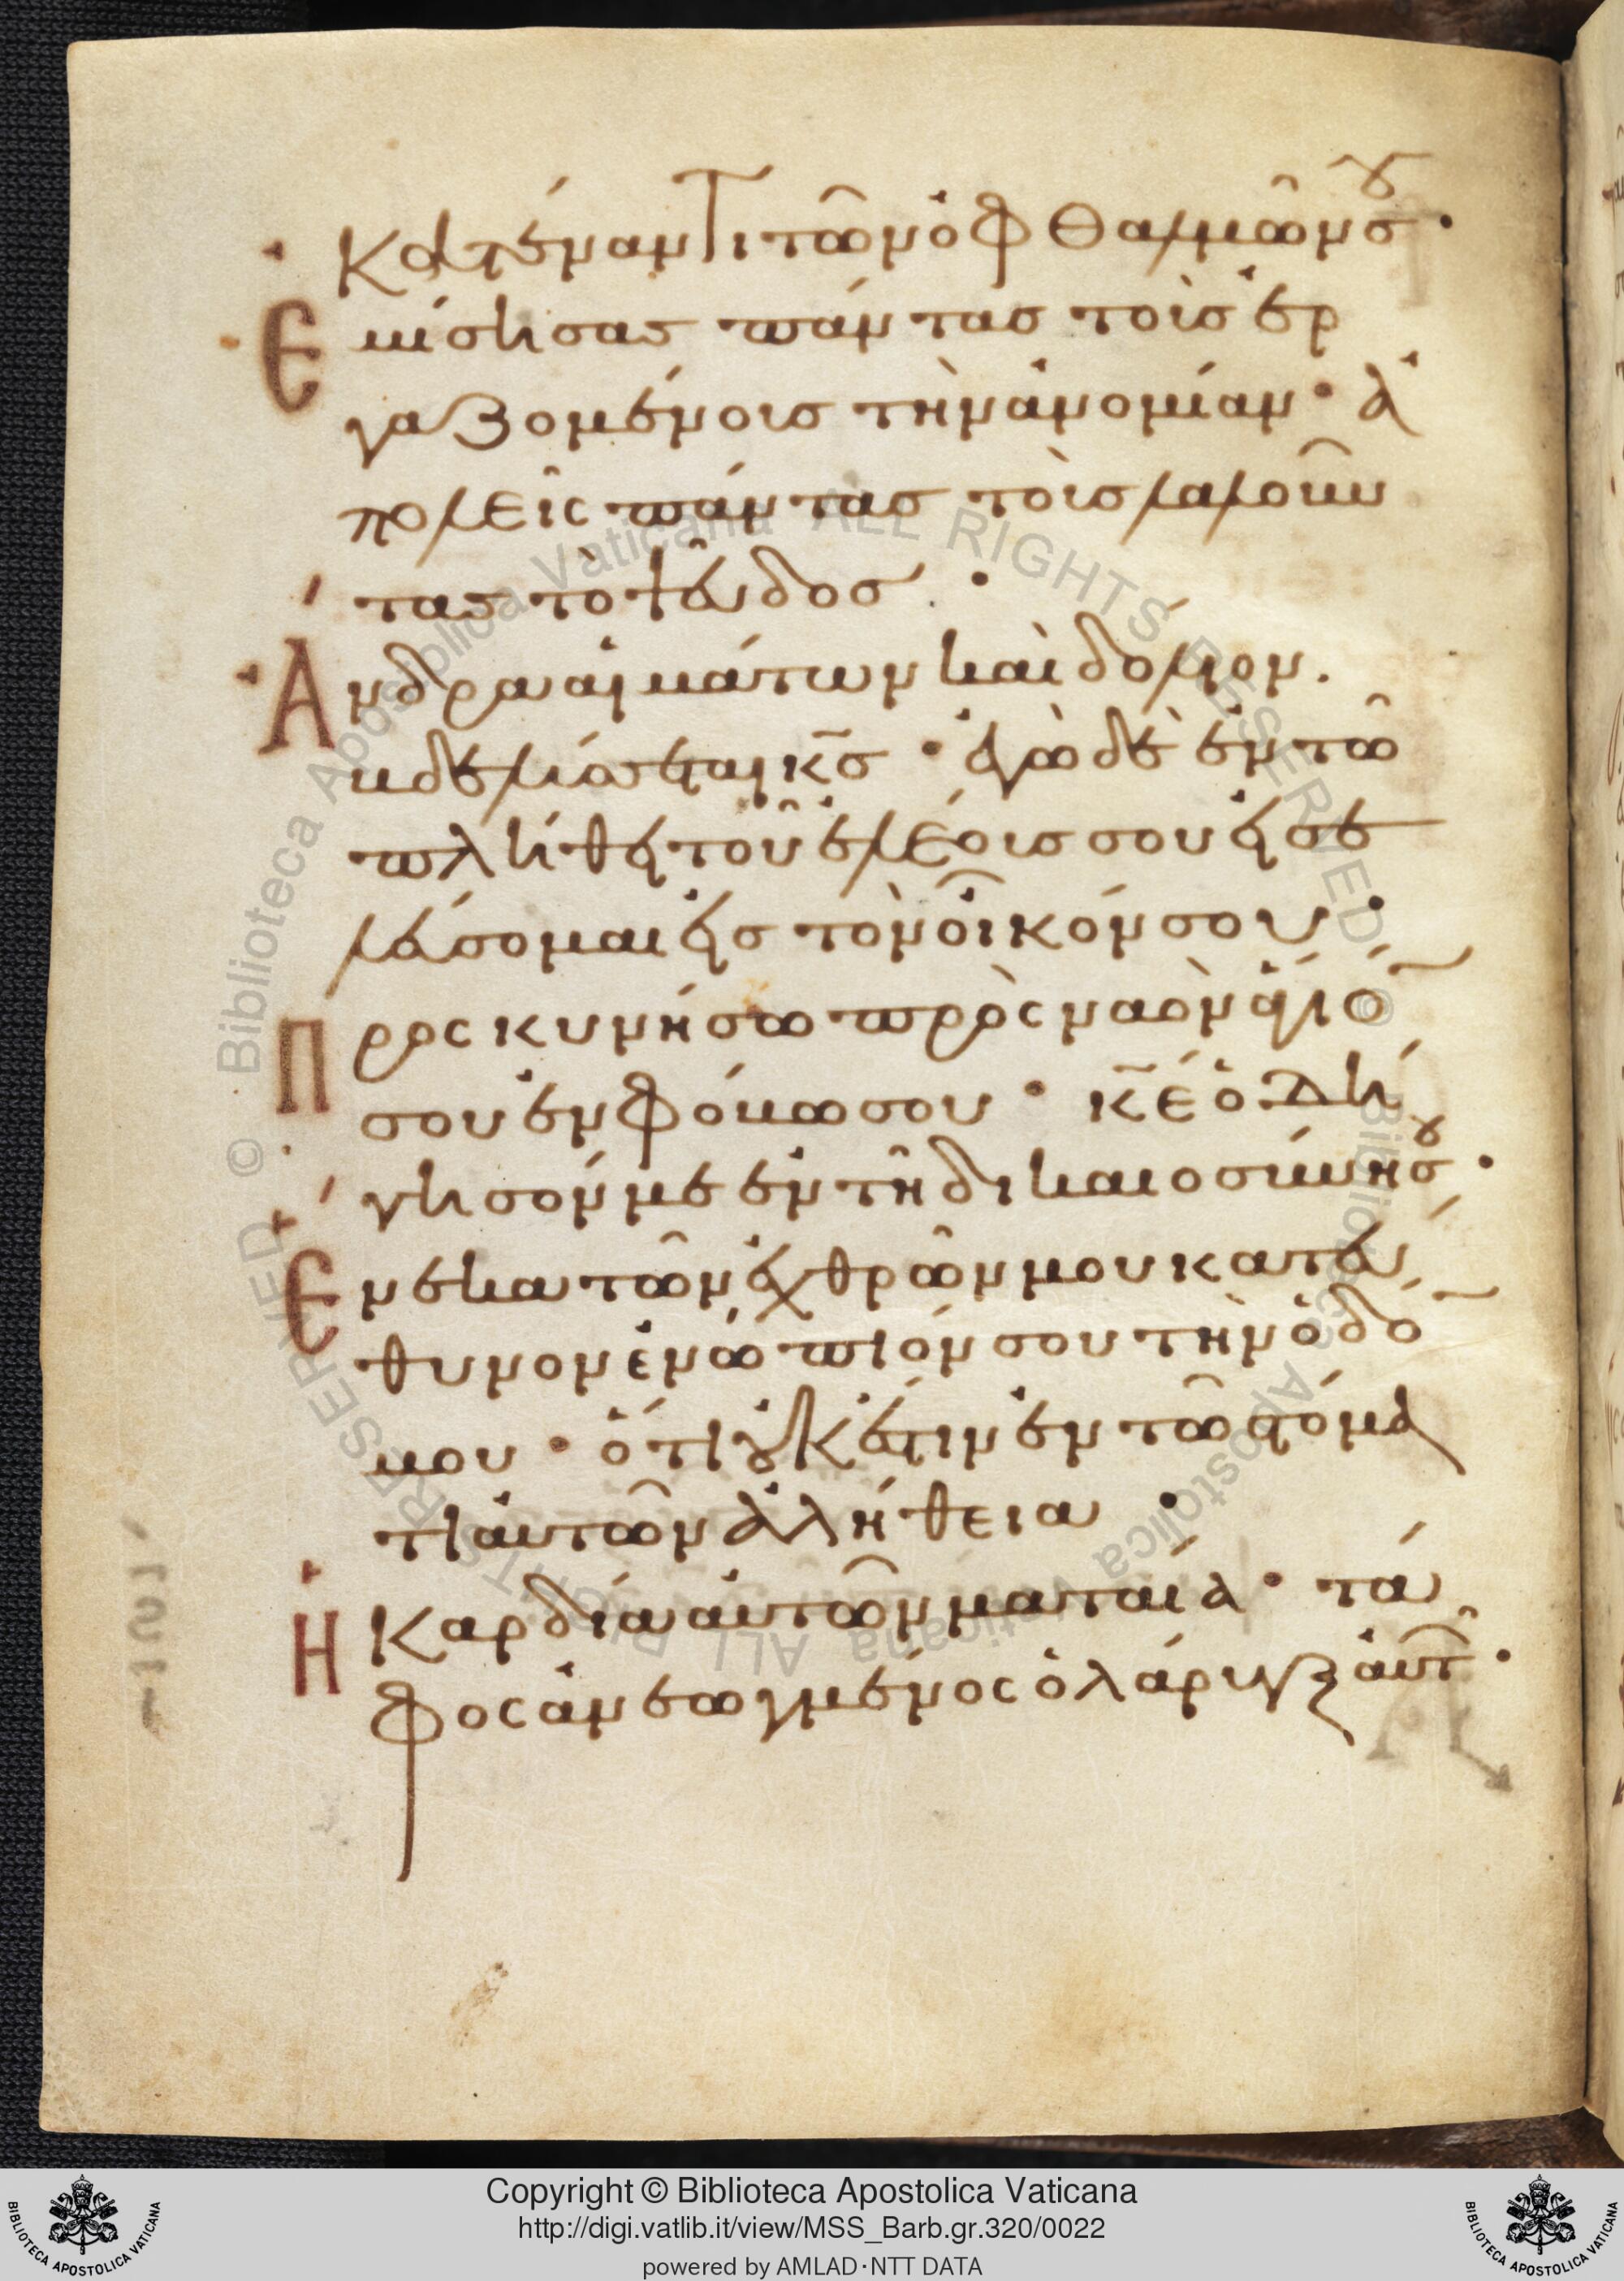 κατέναντι τῶν ὀφθαλμῶν σου·
Ἐμίσησας πάντας τοὺς ἐρ
γαζομένοις τὴν ἀνομίαν· ἀ
πολεῖς πάντας τοὺς λαλοῦν
τας τὸ ψεῦδος·
Ἄνδρα αἱμάτων καὶ δόλιον.
βδελύσσεται κ̅σ̅· ἐγὼ δὲ ἐν τῶ
πλήθει τοῦ ἐλέοις σου εἰσε
λεύσομαι εἰς τὸν οἶκόν σου·
Προσκυνήσω πρὸς ναὸν ἅγιό
σου ἐν φόβω σου· κ̅ε̅ ὁδή
γησόν με ἐν τῆ δικαιοσύνη σου·
Ἕνεκα τῶν ἐχθρῶν μου κατεύ
θυνον ἐνώπιόν σου τὴν ὁδό
μου· ὅτι οὐκ ἔστιν ἐν τῶ στόμα
τι αὐτῶν ἀλήθεια·
Ἡ καρδία αὐτῶν ματαία· τά
φος ἀνεωγμένος ὁ λάρυγξ αὐτ·
© Biblioteca Apostolica Vaticana ALL RIGHTS RESERVED
Copyright © Biblioteca Apostolica Vaticana
http://digi.vatlib.it/view/MSS_Barb.gr.320/0022
powered by AMLAD·NTT DATA
BIBLIOTECA APOSTOLICA VATICANA
BIBLIOTECA APOSTOLICA VATICANA